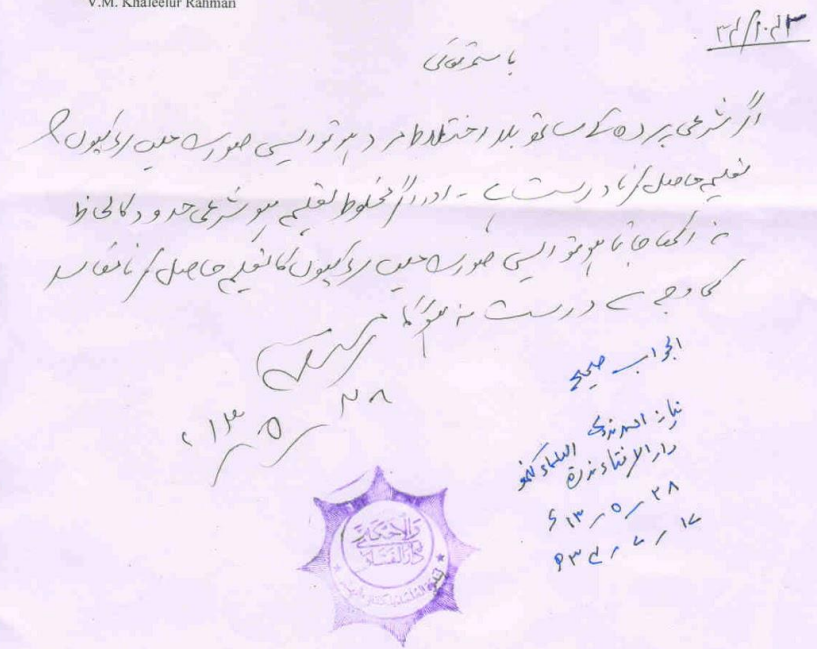 V.M. Khaleelur Rahman
باسمہ تعالیٰ
اگر شرعی پردہ کے ساتھ بلا اختلاط مرد ہو تو ایسی صورت میں لڑکیوں کا
تعلیم حاصل کرنا درست ہے - اور اگر مخلوط تعلیم ہو شرعی حدود کا لحاظ
نہ رکھا جاتا ہو تو ایسی صورت میں لڑکیوں کا تعلیم حاصل کرنا مفاسد
کی وجہ سے درست نہ ہوگا
۲۸ - ۵ - ۱۳ء
الجواب صحیح
نیاز احمد ندوی
دار الافتاء ندوۃ العلماء لکھنؤ
۲۸ - ۵ - ۱۳ء
۱۷ - ۷ - ۳۴ھ